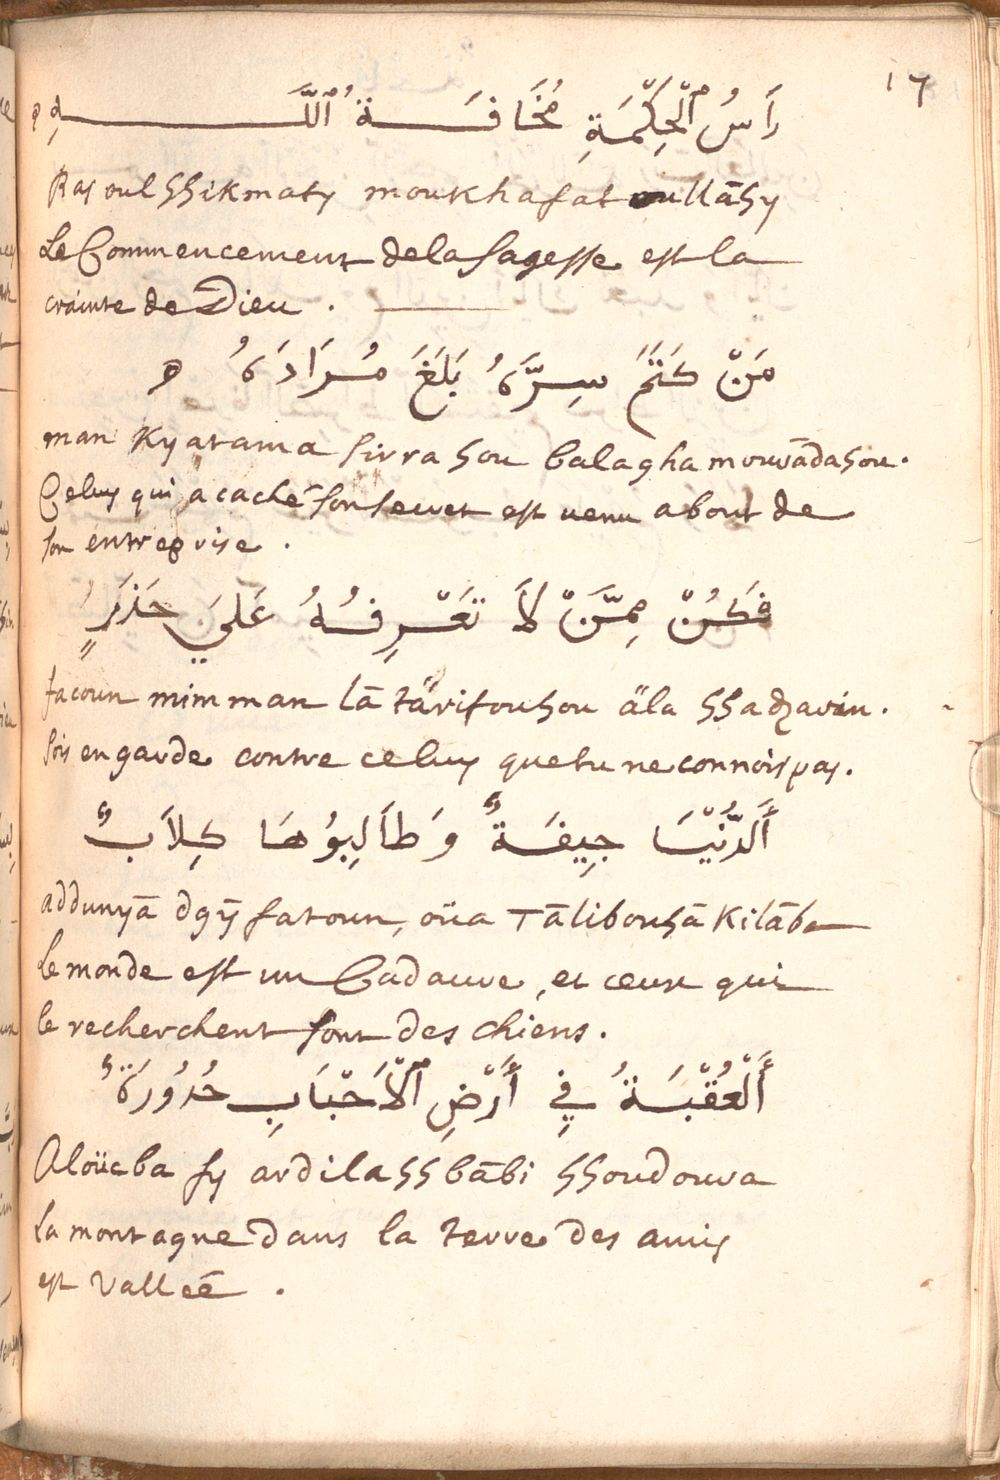 17
رَاسُ ٱلْحِكْمَةِ مُخَافَةُ ٱللَّهِ ه
Ras oul hhikmaty moukhafat oullāhy
Le Commencement de la sagesse est la
crainte de Dieu .
مَنْ كَتَمَ سِرَّهُ بَلَغَ مُرَادَهُ ه
man Kyatama sirrahou balagha mourādahou.
Celuy qui a caché son secret est venu a bout de
son entreprise .
فَكُنْ مِمَّنْ لَا تَعْرِفُهُ عَلَيَ حَذَرٍ
facoun mimman lā tärifouhou äla hhadzarin.
sois en garde contre celuy que tu ne connois pas.
أَلدُّنْيَا جِيفَةٌ وَطَالِبُوُهَا كِلَابٌ
addunyā dgȳfatoun, oüa Tālibouhā Kilābe
le monde est un Cadavre, et ceux qui
le recherchent sont des chiens.
أَلْعُقْبَةُ فِي أَرْضِ ٱلْأَحْبَابِ حُدُورَةٌ
Aloücba fy ardilahhbābi hhoudoura
la montagne dans la terre des amis
est Valleé .